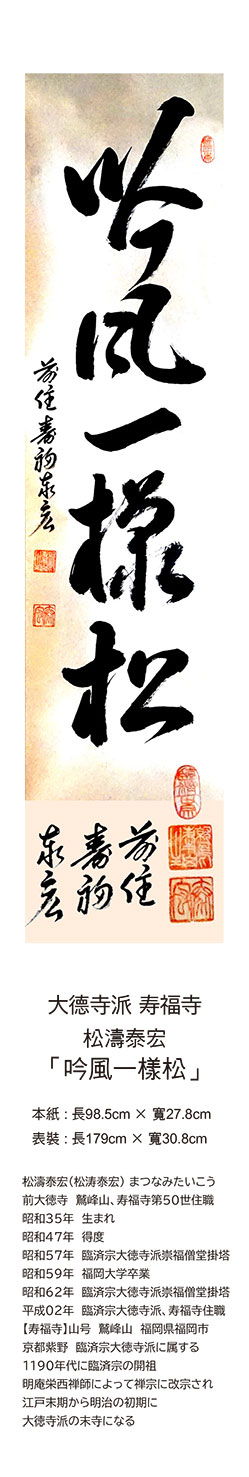 吟風一樣松
前住寿福泰宏
前住
寿福
泰宏
大德寺派 寿福寺
松濤泰宏
「吟風一樣松」
本紙：長98.5cm × 寬27.8cm
表裝：長179cm × 寬30.8cm
松濤泰宏(松涛泰宏) まつなみたいこう
前大徳寺 鷲峰山、寿福寺第50世住職
昭和35年 生まれ
昭和47年 得度
昭和57年 臨済宗大徳寺派崇福僧堂掛塔
昭和59年 福岡大学卒業
昭和62年 臨済宗大徳寺派崇福僧堂掛塔
平成02年 臨済宗大徳寺派、寿福寺住職
【寿福寺】山号 鷲峰山 福岡県福岡市
京都紫野 臨済宗大徳寺派に属する
1190年代に臨済宗の開祖
明庵栄西禅師によって禅宗に改宗され
江戸末期から明治の初期に
大徳寺派の末寺になる